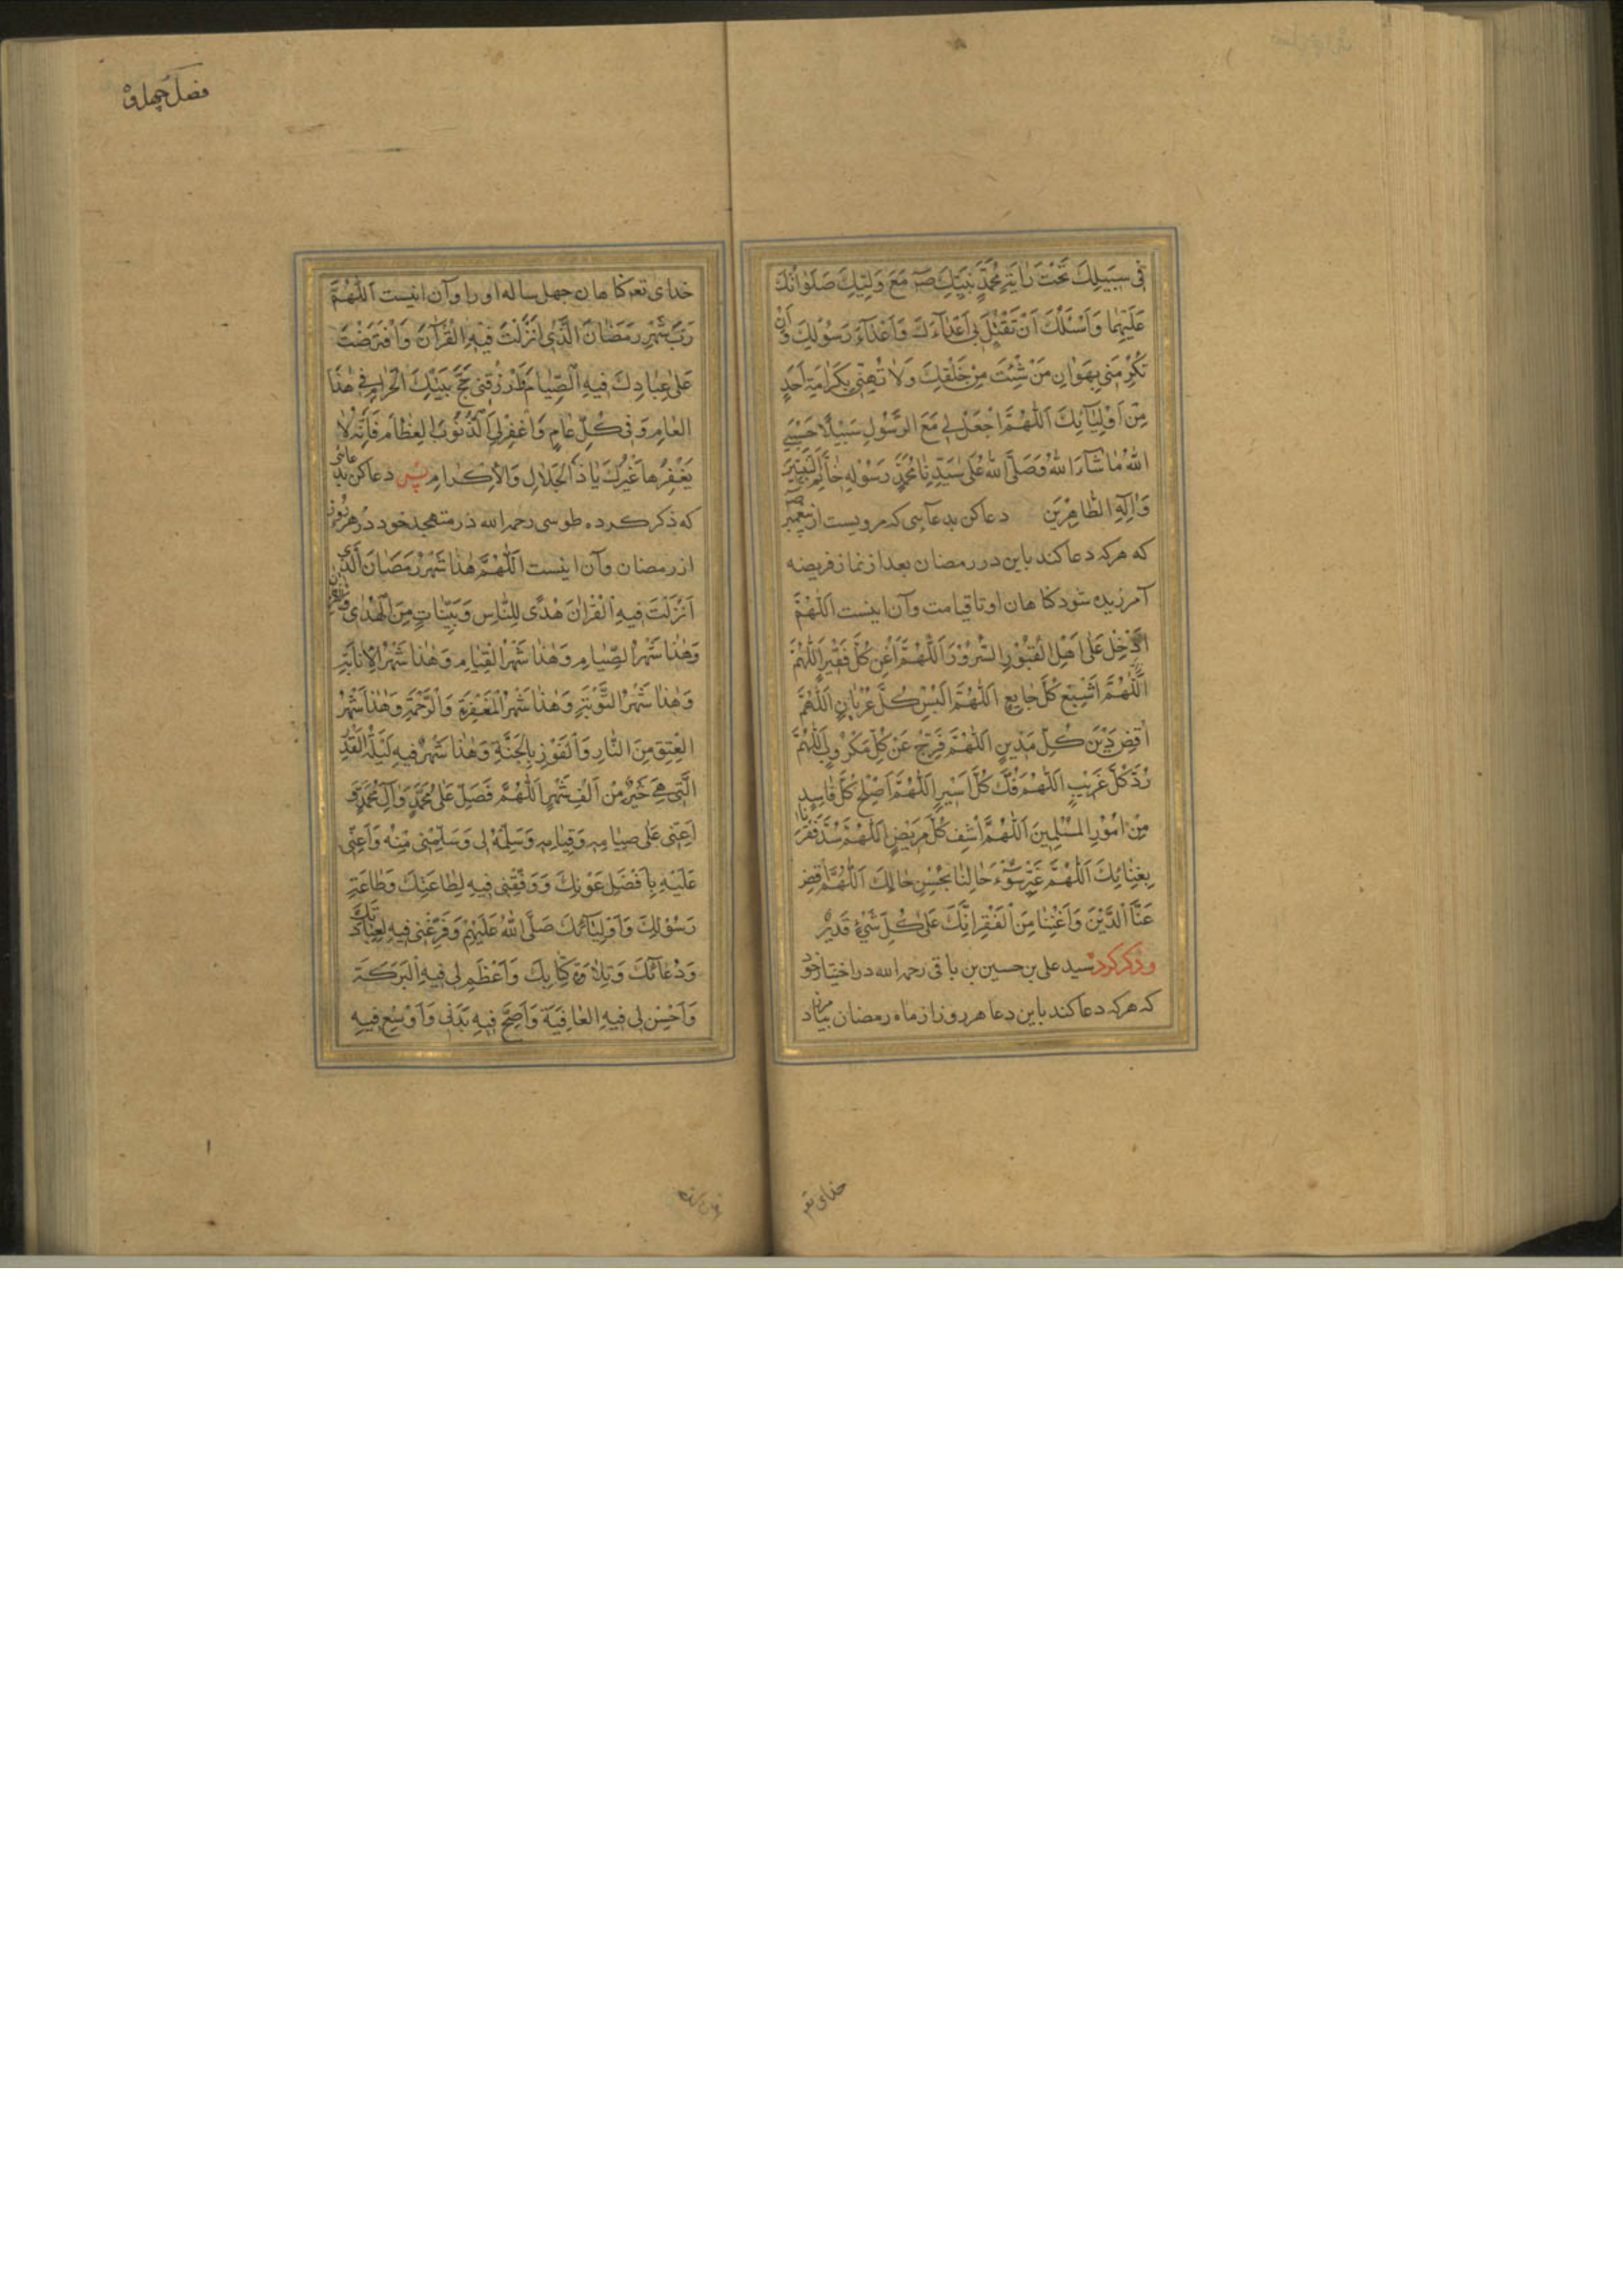 فِی سَبِیلِكَ تَحْتَ رَایَةِ مُحَمَّدٍ نَبِیِّكَ صَ مَعَ وَلِیِّكَ صَلَوَاتُكَ
عَلَیْهِمَا وَاَسْئَلُكَ اَنْ تَقْتُلَ بِی اَعْدَاءَكَ وَاَعْدَآءَ رَسُولِكَ وَاَنْ
تُكْرِمَنِی بِهَوَانِ مَنْ شِئْتَ مِنْ خَلْقِكَ وَلَا تُهِنِّی بِكَرَامَةِ اَحَدٍ
مِنْ اَوْلِیَآئِكَ اَللّٰهُمَّ اجْعَلْ لِی مَعَ الرَّسُولِ سَبِیلًا حَسْبِیَ
اللّٰهُ مَا شَآءَ اللّٰهُ وَصَلَّی اللّٰهُ عَلٰی سَیِّدِنَا مُحَمَّدٍ رَسُولِهِ خَاتَمِ النَّبِیِّینَ
وَاٰلِهِ الطَّاهِرِینَ دعا كن بدعآیی كه مرویست از پیغمبر ص
كه هركه دعا كند باین در رمضان بعد از نماز فریضه
آمرزیده شود كناهان او تا قیامت وآن اینست اَللّٰهُمَّ
اَدْخِلْ عَلٰی اَهْلِ الْقُبُورِ السُّرُورَ اَللّٰهُمَّ اَغْنِ كُلَّ فَقِیرٍ اَللّٰهُمَّ
اَللّٰهُمَّ اَشْبِعْ كُلَّ جَایِعٍ اَللّٰهُمَّ اَلْبِسْ كُلَّ عُرْیَانٍ اَللّٰهُمَّ
اقْضِ دَیْنَ كُلِّ مَدْیِنٍ اَللّٰهُمَّ فَرِّجْ عَنْ كُلِّ مَكْرُوبٍ اَللّٰهُمَّ
رُدَّ كُلَّ غَرِیْبٍ اَللّٰهُمَّ فُكَّ كُلَّ اَسِیْرٍ اَللّٰهُمَّ اَصْلِحْ كُلَّ فَاسِدٍ
مِنْ اُمُوْرِ الْمُسْلِمِینَ اَللّٰهُمَّ اشْفِ كُلَّ مَرِیْضٍ اَللّٰهُمَّ سُدَّ فَقْرَنَا
بِغِنَائِكَ اَللّٰهُمَّ غَیِّرْ سُوْٓءَ حَالِنَا بِحُسْنِ حَالِكَ اَللّٰهُمَّ اقْضِ
عَنَّا الدَّیْنَ وَاَغْنِنَا مِنَ الْفَقْرِ اِنَّكَ عَلٰی كُلِّ شَیْءٍ قَدِیْرٌ
وذكر كرد سید علی بن حسین بن باقی رحمه الله در اختیار خود
كه هركه دعا كند باین دعا هر روز از ماه رمضان بیامرزد
خدای تعـ
فصل چهل و
خدای تعـ كناهان چهل ساله او را وآن اینست اَللّٰهُمَّ
رَبَّ شَهْرِ رَمَضَانَ الَّذِی اَنْزَلْتَ فِیهِ الْقُرْآنَ وَافْتَرَضْتَ
عَلٰی عِبَادِكَ فِیهِ الصِّیَامَ ارْزُقْنِی حَجَّ بَیْتِكَ الْحَرَامِ فِی هٰذَا
الْعَامِ وَفِی كُلِّ عَامٍ وَاغْفِرْلِیَ الذُّنُوبَ الْعِظَامَ فَاِنَّهُ لَا
یَغْفِرُهَا غَیْرُكَ یَا ذَا الْجَلَالِ وَالْاِكْرَامِ پس دعا كن بدعائی
كه ذكر كرده طوسی رحمه الله در متهجد خود در هر روز
از رمضان وآن اینست اَللّٰهُمَّ هٰذَا شَهْرُ رَمَضَانَ الَّذِی
اَنْزَلْتَ فِیهِ الْقُرْاٰنَ هُدًی لِلنَّاسِ وَبَیِّنَاتٍ مِنَ الْهُدٰی وَالْفُرْقَانِ
وَهٰذَا شَهْرُ الصِّیَامِ وَهٰذَا شَهْرُ الْقِیَامِ وَهٰذَا شَهْرُ الْاِنَابَةِ
وَهٰذَا شَهْرُ التَّوْبَةِ وَهٰذَا شَهْرُ الْمَغْفِرَةِ وَالرَّحْمَةِ وَهٰذَا شَهْرُ
الْعِتْقِ مِنَ النَّارِ وَالْفَوْزِ بِالْجَنَّةِ وَهٰذَا شَهْرٌ فِیهِ لَیْلَةُ الْقَدْرِ
الَّتِی هِیَ خَیْرٌ مِنْ اَلْفِ شَهْرٍ اَللّٰهُمَّ فَصَلِّ عَلٰی مُحَمَّدٍ وَاٰلِ مُحَمَّدٍ وَ
اَعِنِّی عَلٰی صِیَامِهِ وَقِیَامِهِ وَسَلِّمْهُ لِی وَسَلِّمْنِی مِنْهُ وَاَعِنِّی
عَلَیْهِ بِاَفْضَلِ عَوْنِكَ وَوَفِّقْنِی فِیهِ لِطَاعَتِكَ وَطَاعَةِ
رَسُوْلِكَ وَاَوْلِیَآئِكَ صَلَّی اللّٰهُ عَلَیْهِمْ وَفَرِّغْنِی فِیهِ لِعِبَادَتِكَ
وَدُعَآئِكَ وَتِلَاوَةِ كِتَابِكَ وَاَعْظِمْ لِی فِیهِ الْبَرَكَةَ
وَاَحْسِنْ لِی فِیهِ الْعَافِیَةَ وَاَصِحَّ فِیهِ بَدَنِی وَاَوْسِعْ فِیهِ